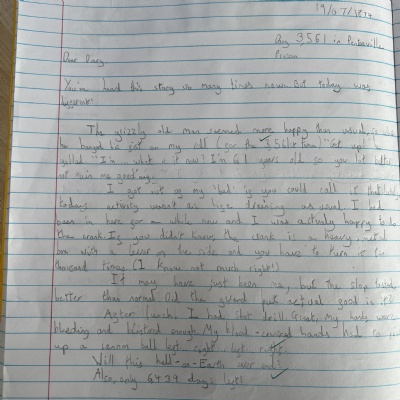 19/07/187
Day 3,561 in Pentonville
Prison
Dear Diary
You've heard this story so many times now. But today was
different!
The grizzly old man seemed more happy than usual,
he banged his fist on my cell (for the 3,561st time) "Get up!" he
yelled "I'm what is it now? I'm 61 years old so you lot better
not ruin me
I got up on my 'bed' if you could call it that
todays activity wasn't as huge training as usual. I had
been in here for a while now and I was actually happy to do
the crank. If you didn't know, the crank is a heavy, metal
box with lever on the side and you have to turn it
thousand times (I know not much right!)
It may have just been me, but the slop tasted
better than normal. Did the guard put actual good in it?
After lunch, I had shot drill. Great, my hands were
bleeding and blistered enough. My blood-covered hands had to
up a cannon ball left, right, left, right.
Will this hell-on-Earth ever end?
Also, only 6439 days left!